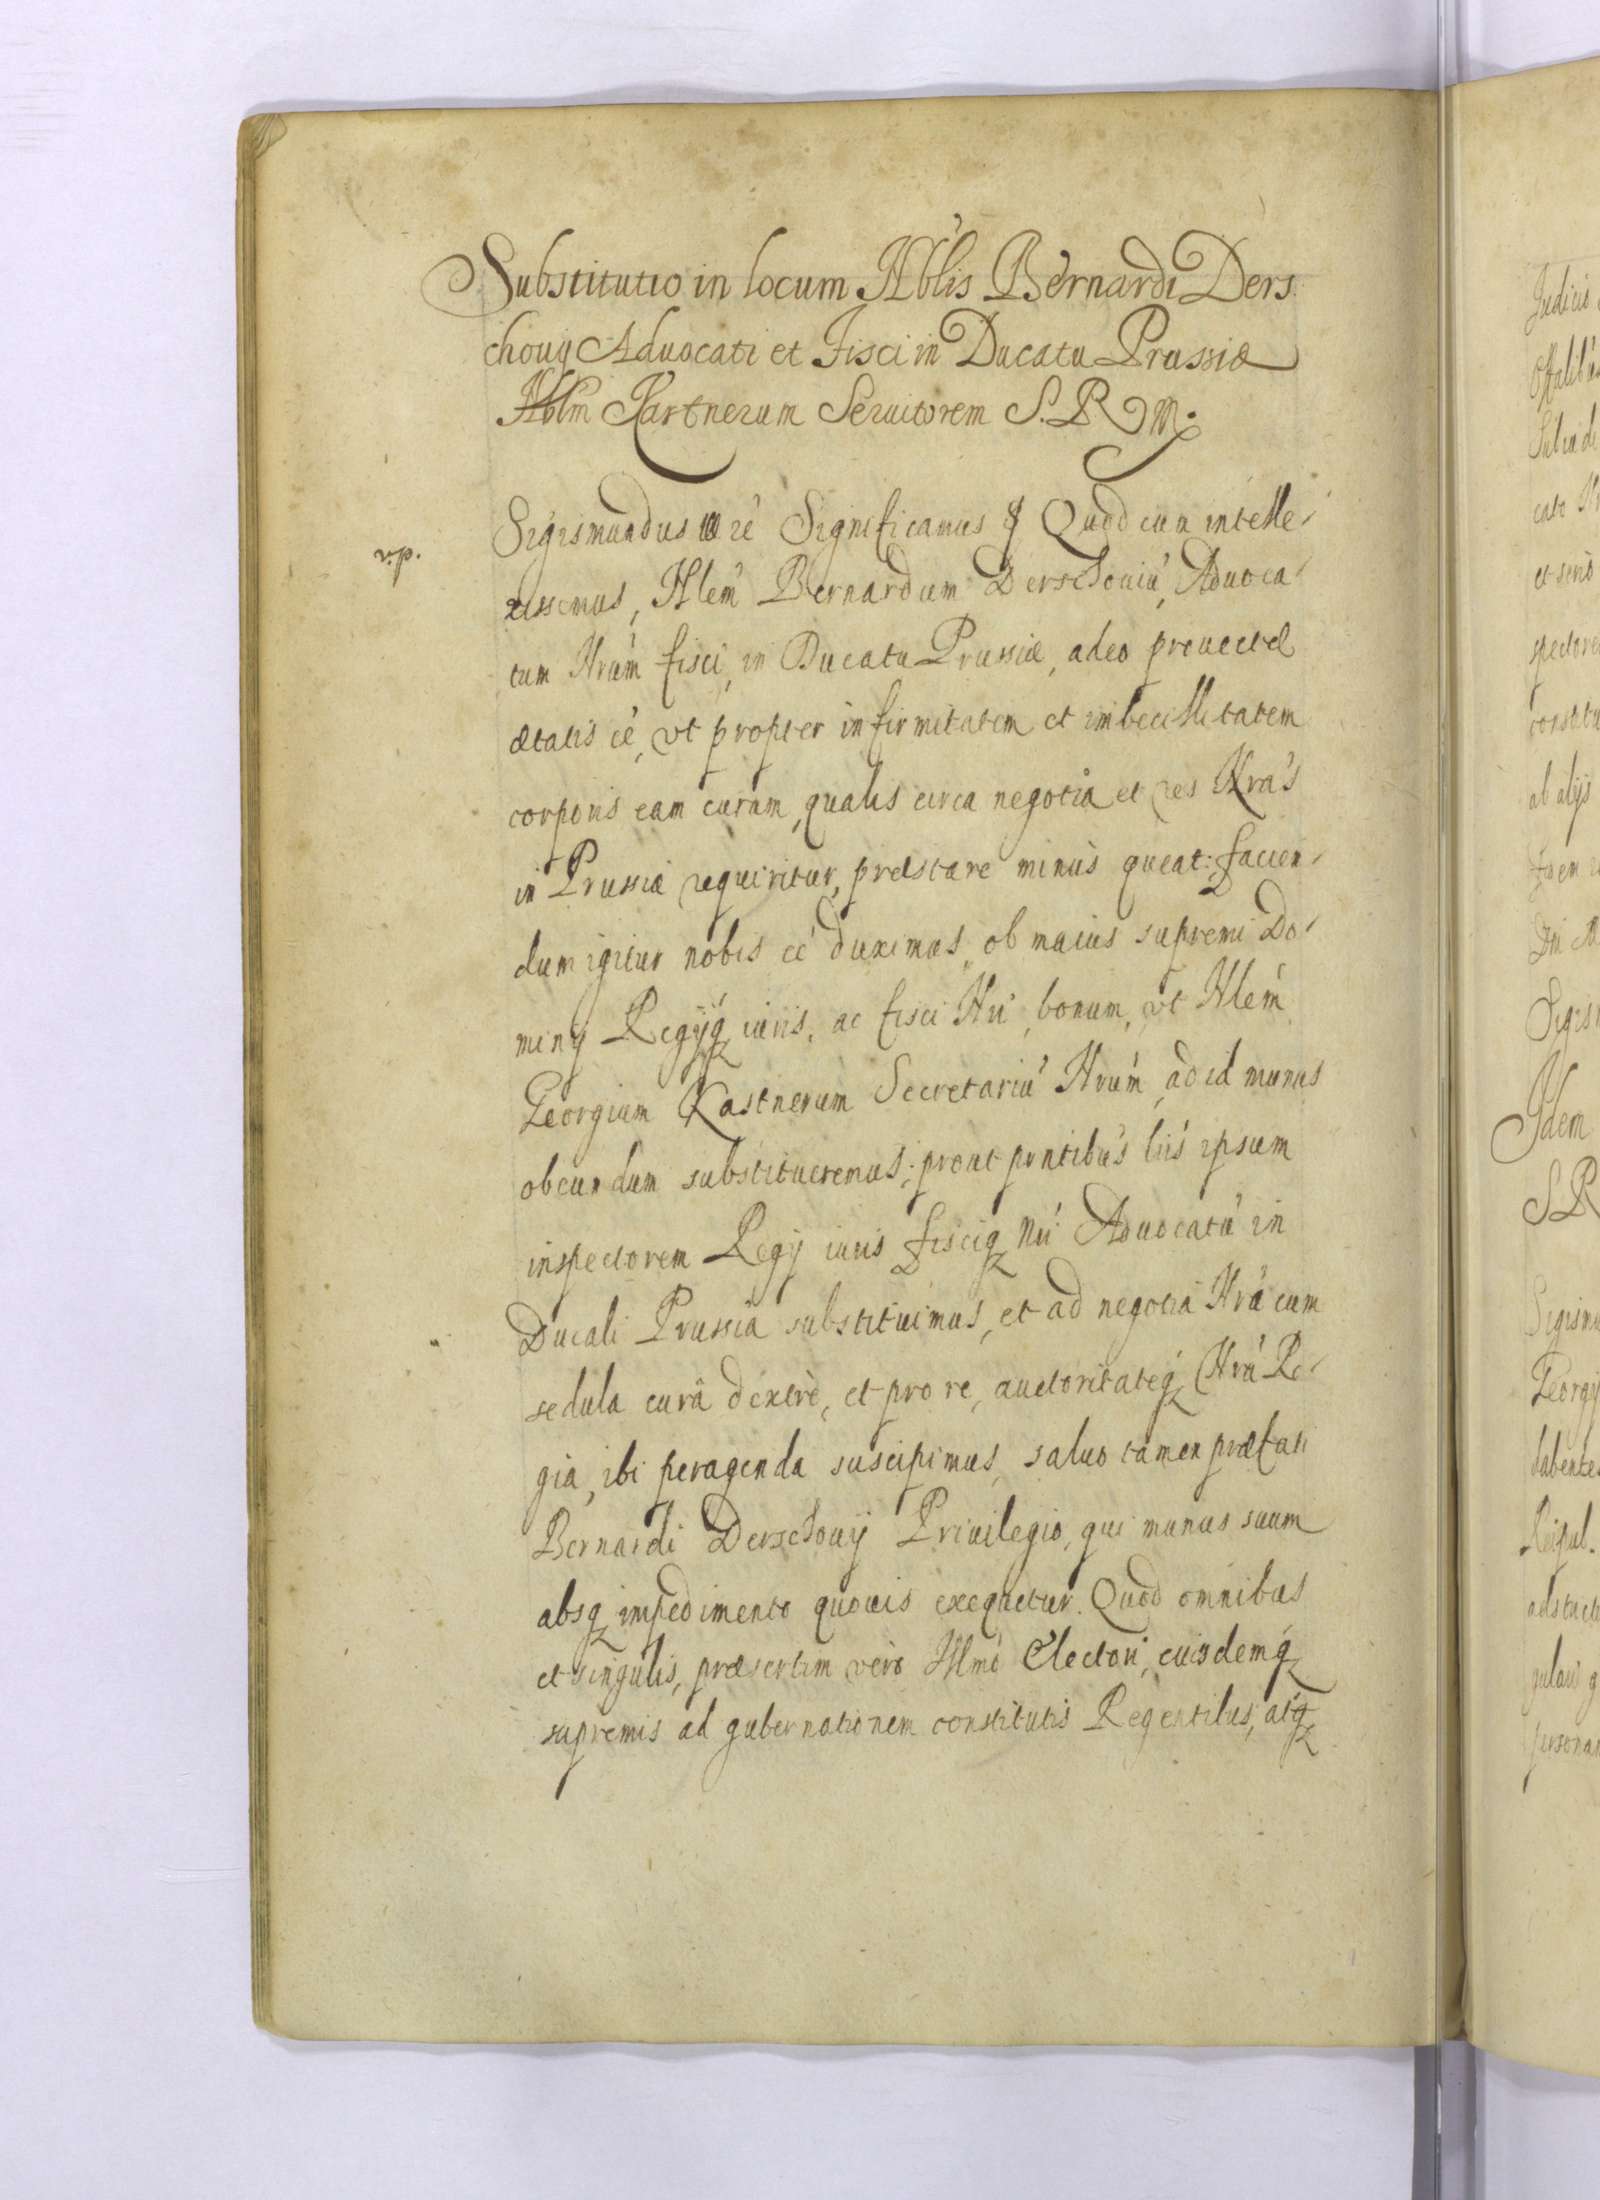 Substitutio in locum Nblis Bernardi Ders
chouij Aduocati et Fisci in Ducatu Prussiæ
Nblm Kartnerum Seruitorem S. R M.
Sigismundus Significamus Quod cum intelle-
xissemus, Nlem Bernardum Derschouiu, Aduoca-
tum Nrum fisci, in Ducatu Prussiæ, adeo prouectæ
ætatis eé, vt propter infirmitatem et imbecillitatem
corporis eam curam, qualis circa negotia et res Nras
in Prussia requiritur, præstare minus queat: facien-
dum igitur nobis eé duximus, ob maius supremi Do-
minij Regijq iuris, ac fisci Nri, bonum, vt Nlem
Georgium Kastnerum Secretariu Nrum, ad id munus
obeundum substitueremus; prout pntibus lris ipsum
inspectorem Regij iuris fisciq Nri Aduocatu in
Ducali Prussia substituimus, et ad negotia Nra cum
sedula curâ dextrè, et pro re, auctoritateq Nra Re-
gia, ibi peragenda suscipimus, saluo tamen præfati
Bernardi Derschouij Priuilegio, qui munus suum
absq impedimento quouis exequetur. Quod omnibus
et singulis, præsertim vero Illmo Electori, eiusdemq
supremis ad gubernationem constitutis Regentibus, atq